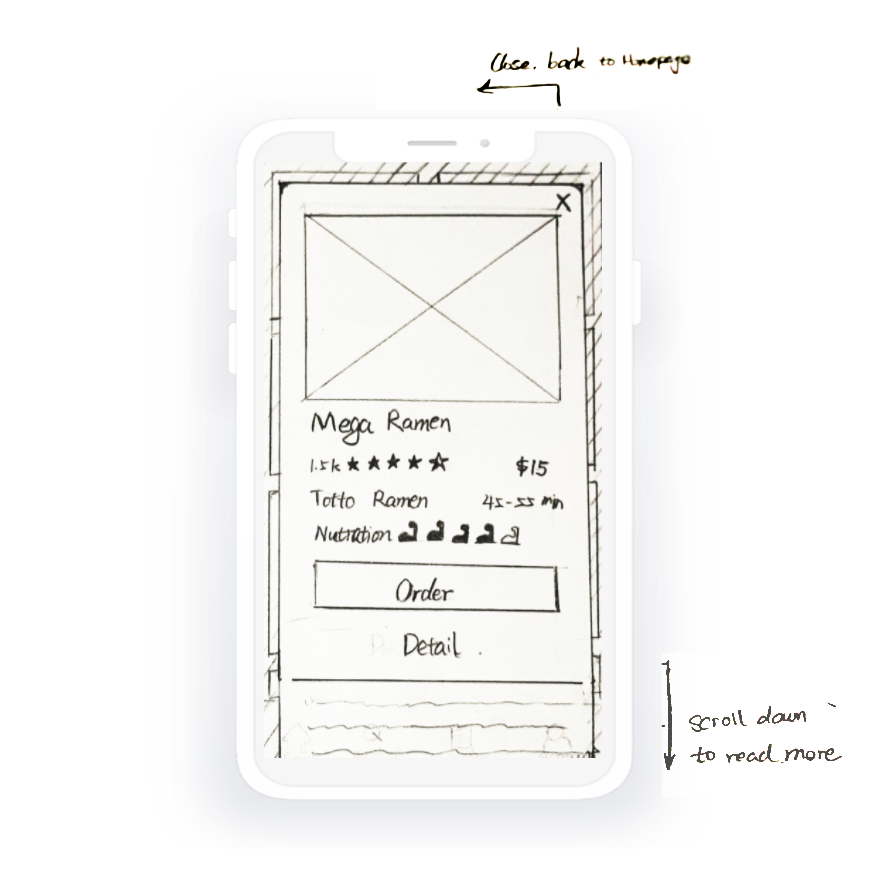 Close. back to Homepage
X
Mega Ramen
1.5k $15
Totto Ramen 45-55 min
Nutrition
Order
Detail.
scroll down
to read more